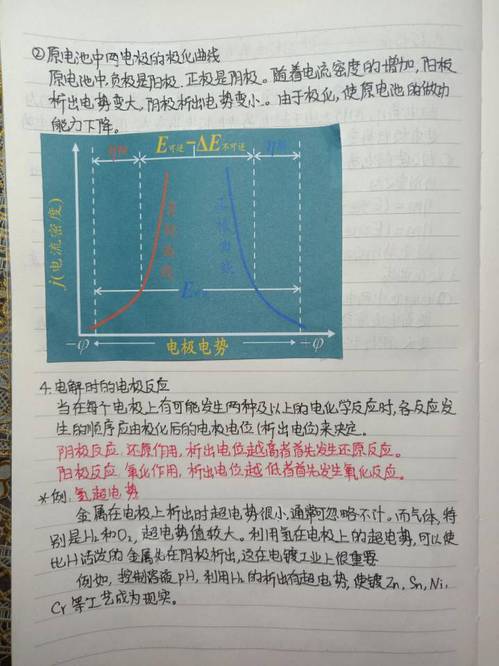 ②原电池中两电极的极化曲线
原电池中,负极是阳极,正极是阴极。随着电流密度的增加,阳极
析出电势变大,阴极析出电势变小。由于极化,使原电池的做功
能力下降。
E可逆-ΔE不可逆
j(电流密度)
负极曲线
正极曲线
-φ 电极电势 -φ
4.电解时的电极反应
当在每个电极上有可能发生两种及以上的电化学反应时,各反应发
生的顺序应由极化后的电极电位(析出电位)来决定。
阴极反应:还原作用,析出电位越高者首先发生还原反应。
阳极反应:氧化作用,析出电位越低者首先发生氧化反应。
*例:氢超电势
金属在电极上析出时超电势很小,通常可忽略不计。而气体,特
别是H₂和O₂,超电势值较大。利用氢在电极上的超电势,可以使
比H活泼的金属先在阴极析出,这在电镀工业上很重要
例如,控制溶液pH,利用H₂的析出有超电势,使镀Zn,Sn,Ni,
Cr等工艺成为现实。